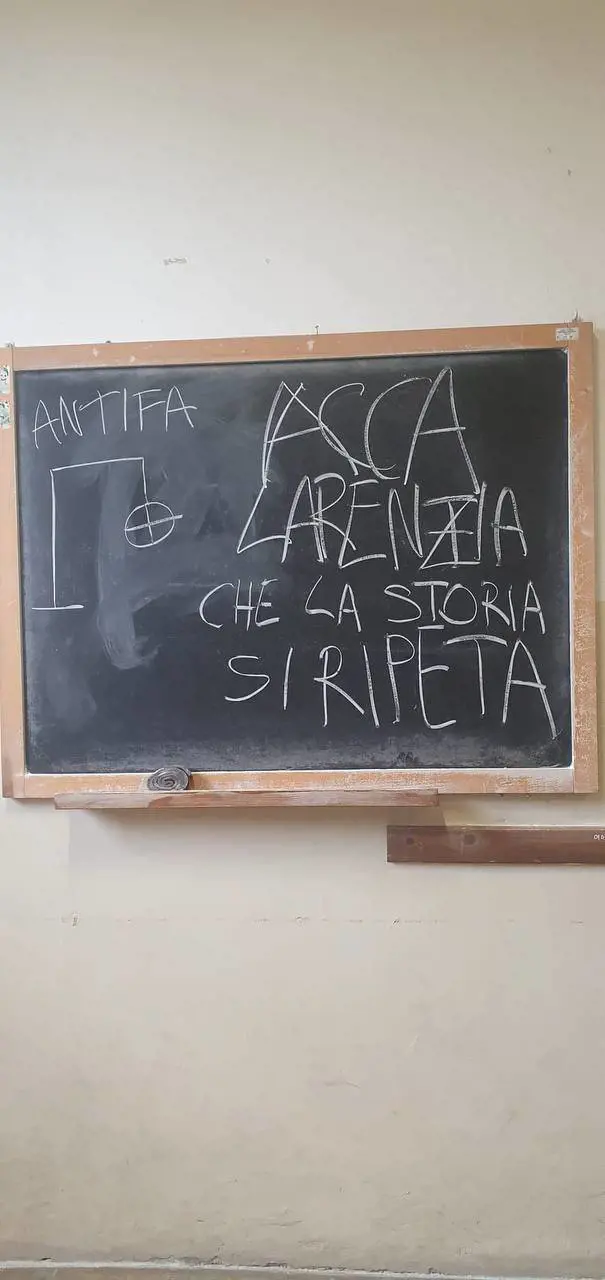 ANTIFA
ACCA
LARENZIA
CHE LA STORIA
SI RIPETA